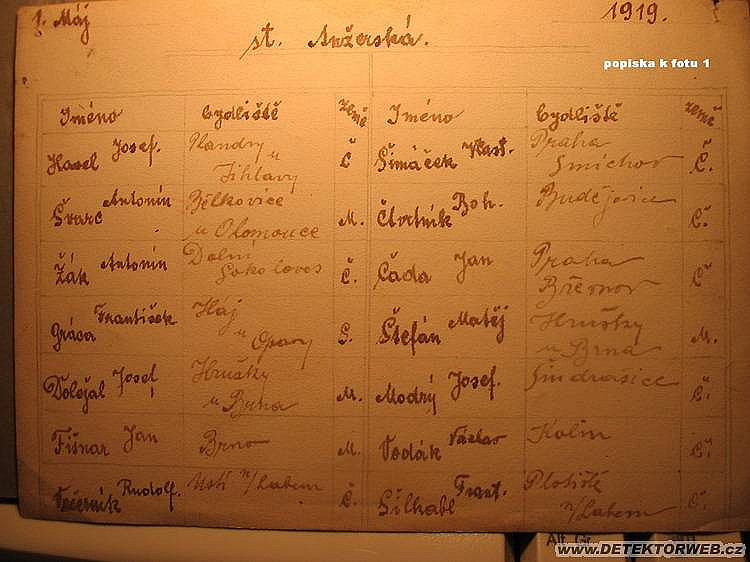 1. Máj 1919.
st. Anžerská.
popiska k fotu 1
Jméno Bydliště Země Jméno Bydliště Země
Havel Josef. Handry u Jihlavy Č Šimáček Frant. Praha Smíchov Č.
Švarc Antonín Bělkovice u Olomouce M. Čtvrtník Boh. Budějovice Č.
Žák Antonín Dolní Č. Čada Jan Praha Břevnov Č
Gráca František Háj u Opavy S. Štefán Matěj Hrušky u Brna M.
Doležal Josef Hrušky u Brna M. Modrý Josef. Č.
Fišnar Jan Brno M. Vodák Václav Kolín Č.
Večerník Rudolf. Ústí n/Labem Č. Frant. Plotiště n/Labem Č.
www.DETEKTORWEB.cz